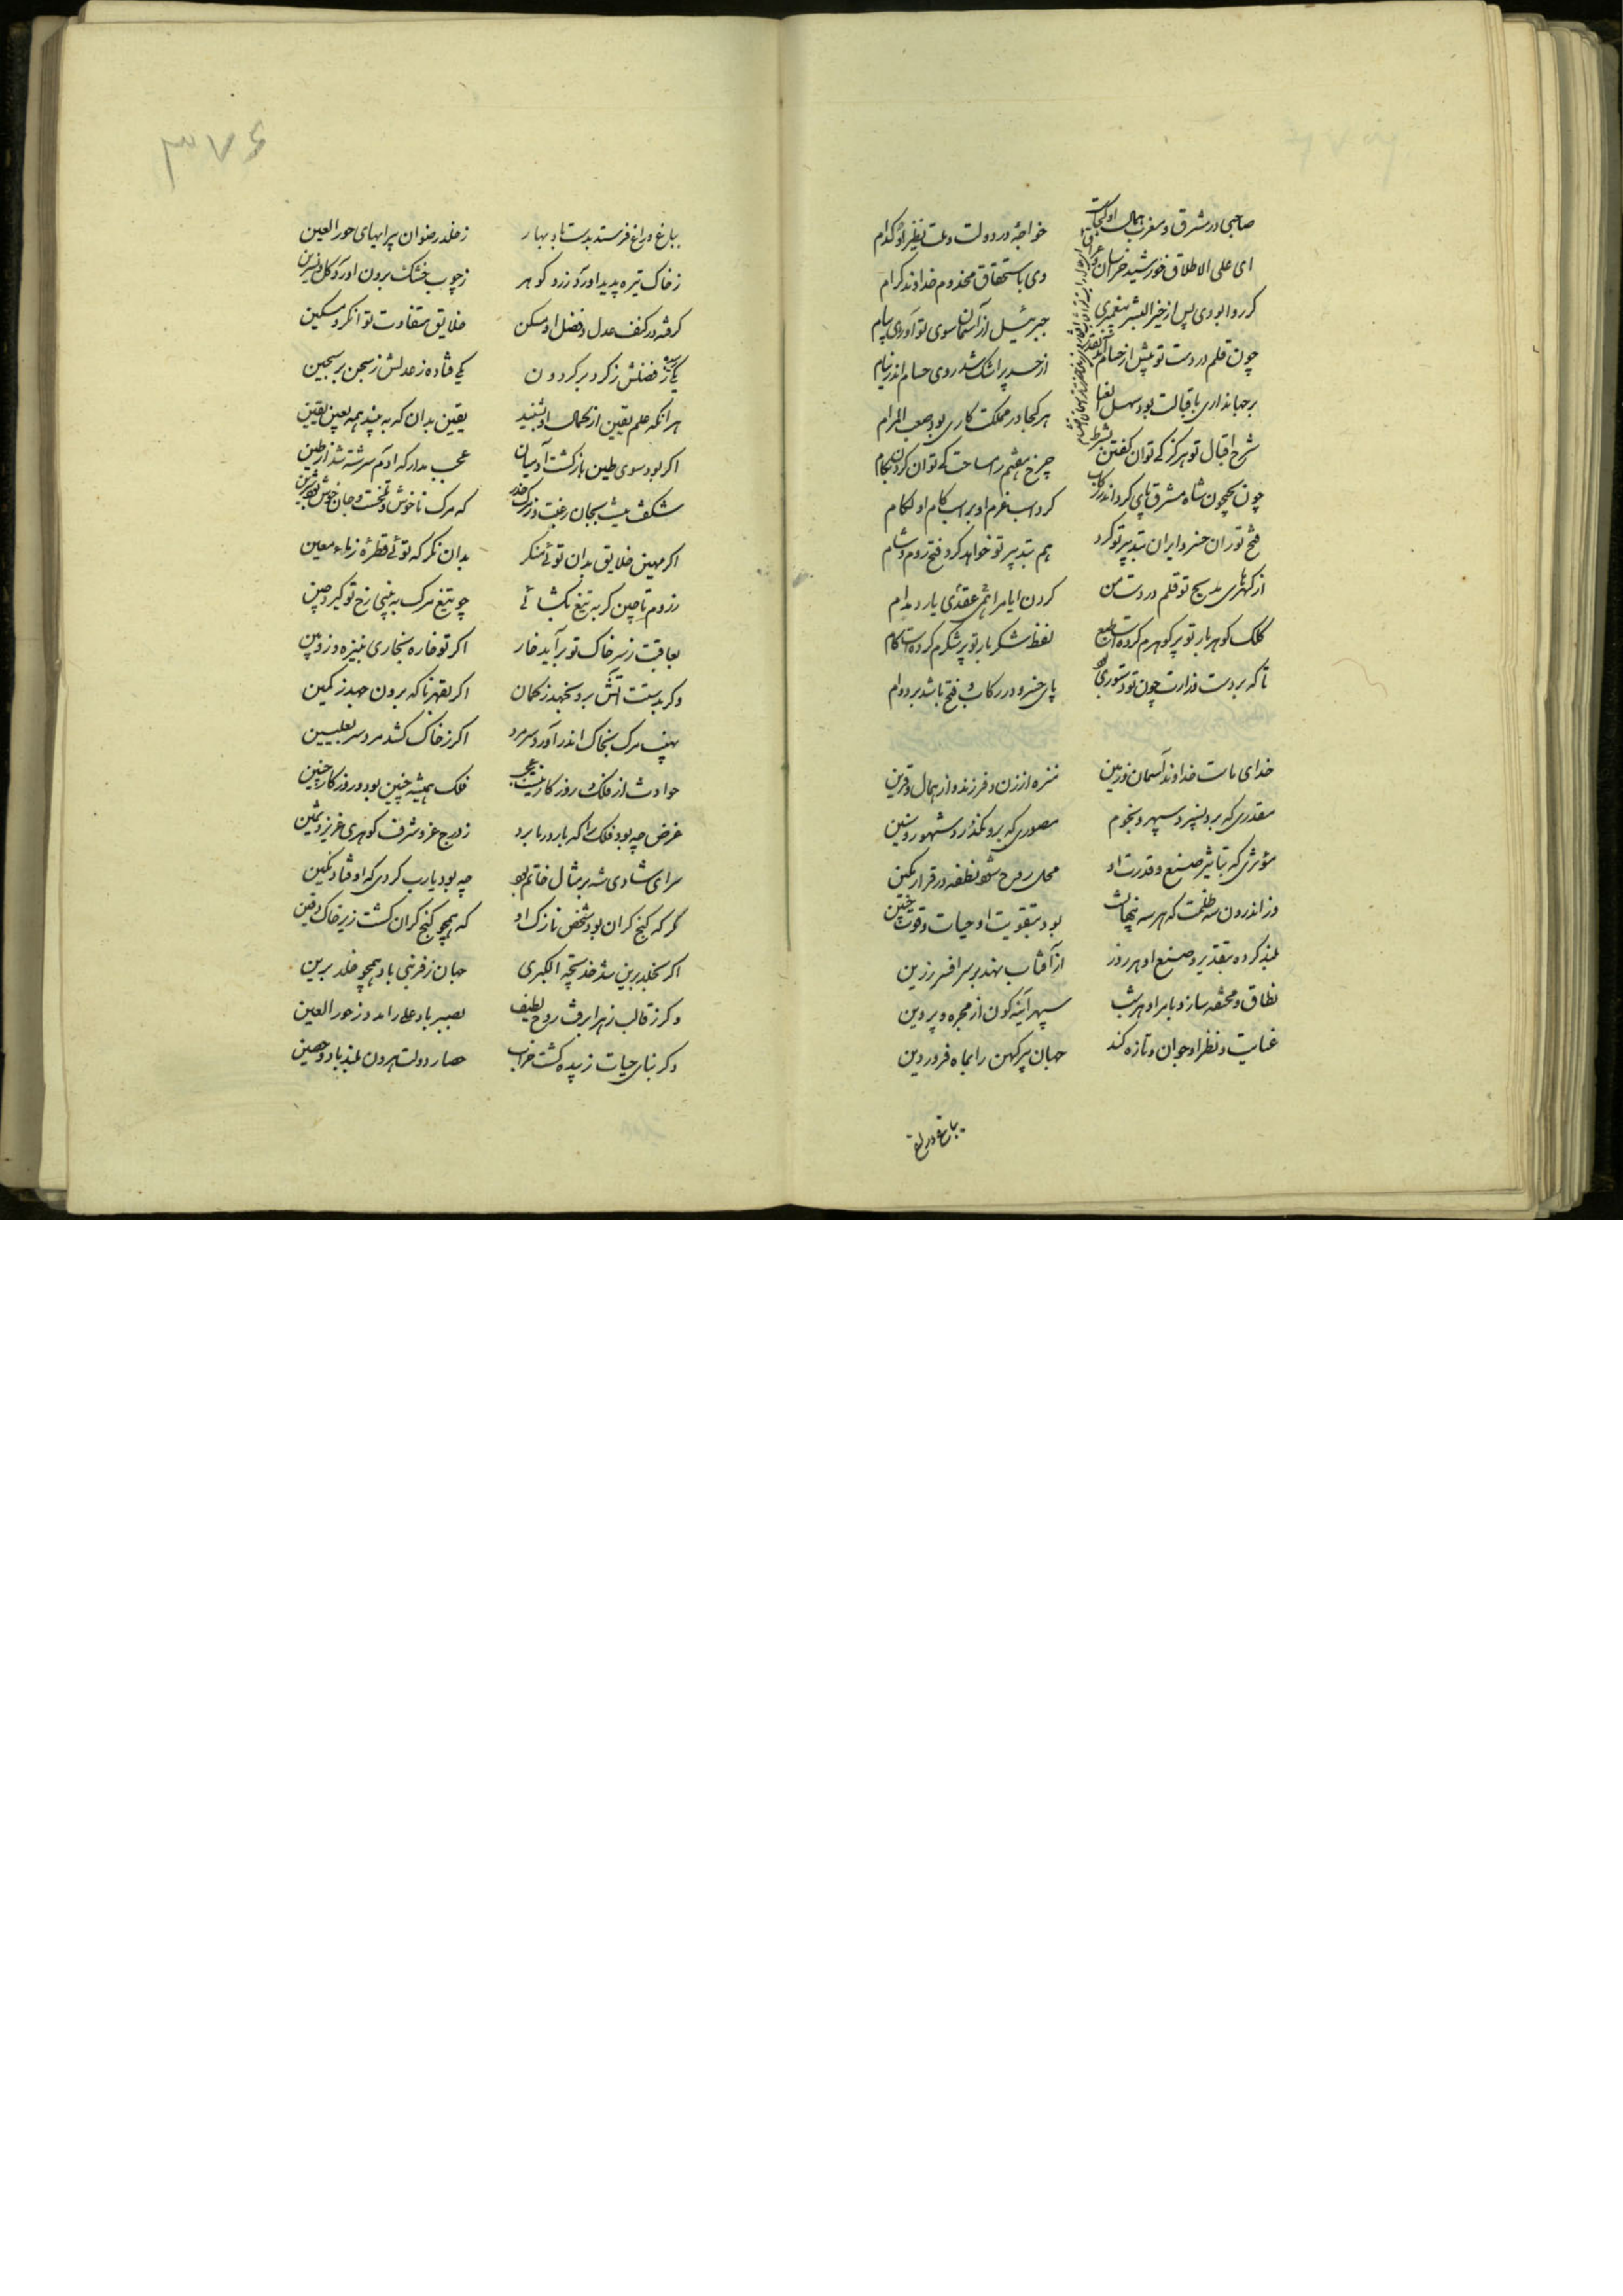 صاحبی در مشرق و مغرب همال او کجاست خواجهٔ در دولت و ملت نظیر او کدام
ای علی الاطلاق خورشید خراسان و عراق وی باستحقاق مخدوم خداوند کرام
کر روا بودی پس از خیر البشر پیغمبری جبرئیل از آسمان سوی تو آوردی پیام
چون قلم در دست تو بیش از حسام از حسد پر اشک شد روی حسام اندر نیام
بر جهانداری باقبالت بود سهل هر کجا در مملکت کاری بود صعب المرام
شرح اقبال تو هرکز کی توان کفتن بشرط چرخ هفتم را مساحت کی توان کردن بکام
چون بجیحون شاه مشرق پای کرد اندر رکاب کرد اسب عزم او بر اسب کام او لکام
فتح توران خسرو ایران بتدبیر تو کرد هم بتدبیر تو خواهد کرد فتح روم و شام
از کهرهای مدیح تو قلم در دست من کردن ایام را همی عقدی یارد مدام
کلک کوهر بار تو پر کوهرم کرده است طبع لفظ شکر بار تو پر شکرم کرده است کام
تا که بر دست وزارت چون تو دستوری بود پای خسرو در رکاب فتح باشد بر دوام
خدای ماست خداوند آسمان و زمین منزه از زن و فرزند و از همال و قرین
مقدری که برو نسپرد سپهر و نجوم مصوری که برو نکذرد شهور و سنین
مؤثری که بتاثیر صنع و قدرت او محل روح شود نطفه در قرار مکین
در اندرون سه ظلمت که هر سه پنهانست بود بتقویت او حیات و قوت جنین
بلند کرده بتقدیر و صنع او هر روز از آفتاب نهد بر سر افسر زرین
نطاق و مخنقه سازد بامر او هر شب سپهر آینه کون از مجره و پروین
عنایت و نظر او جوان و تازه کند جهان پیر کهن را بماه فروردین
بباغ و راغ
۳۷۶
بباغ و راغ فرستد بدست باد بهار ز خلد رضوان پیرایهای حور العین
ز خاک تیره پدید آورد زر و کوهر ز چوب خشک برون آورد کل و نسرین
کرفته در کنف عدل و فضل او مسکن خلایق متفاوت توانکر و مسکین
یکی رسیده ز فضلش ز کرد بر کردون یکی فتاده ز عدلش ز سجن بر سجین
هر آنکه علم یقین از کمال او شنید یقین بدان که به بیند همه بعین یقین
اکر بود سوی طین بازکشت آدمیان عجب مدار که آدم سرشته شد از طین
شکفت نیست بجان رغبت و ز مرک حذر که مرک ناخوش و تلخست و جان خوش و شیرین
اکر مهین خلایق بدان توئی منکر بدان نکر که توئی قطرهٔ ز ماء معین
ز روم تا چین کر به تیغ بکشائی چو تیغ مرک به بینی رخ تو کیرد چین
بعاقبت ز سر خاک تو برآید خار اکر تو خاره بخاری بنیزه و زوبین
وکر بدست آتش برو بجهد ز کمان اکر بقهر ناکه برون جهد ز کمین
نهیب مرک بخاک اندر آورد سر مرد اکر ز خاک کشد مرد سر بعلیین
حوادث از فلک و روزکار نیست عجب فلک همیشه چنین بود و روزکار چنین
غرض چه بود فلک را که بار در ربا برد ز درج عز و شرف کوهری عزیز و ثمین
سرای شادی شه بر مثال خاتم بود چه بود یارب کردی که اوفتاد نکین
کر که کنج کران بود شخص نازک او که همچو کنج کران کشت زیر خاک دفین
اکر بخلد برین شد خدیجه الکبری جهان ز فر نبی باد همچو خلد برین
وکر ز قالب زهرا برفت روح لطیف نصیب باد علی را مدد ز حور العین
وکر بنای حیات زبیده کشت خراب حصار دولت هرون بلند باد و حصین